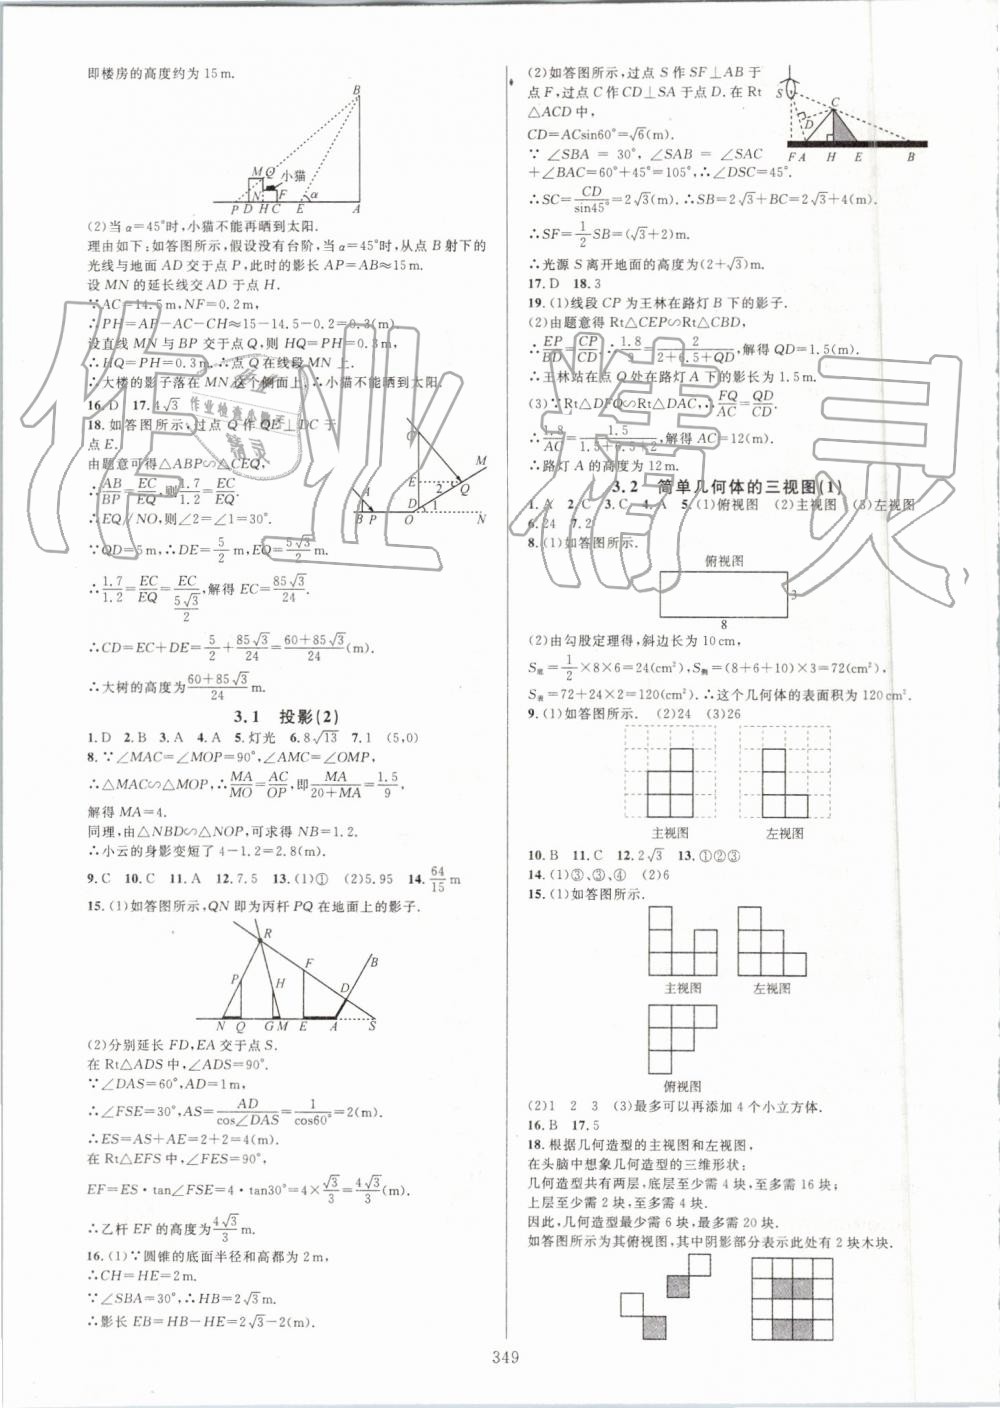 即楼房的高度约为15 m.
B
M Q 小猫
N F
P D H C E α A
(2)当α=45°时,小猫不能再晒到太阳.
理由如下:如答图所示,假设没有台阶,当α=45°时,从点B射下的
光线与地面AD交于点P,此时的影长AP=AB≈15 m.
设MN的延长线交AD于点H.
∵AC=14.5 m,NF=0.2 m,
∴PH=AP-AC-CH≈15-14.5-0.2=0.3(m).
设直线MN与BP交于点Q,则HQ=PH=0.3 m,
∴HQ=PH=0.3 m,∴点Q在线段MN上.
∴大楼的影子落在MN这个侧面上.∴小猫不能晒到太阳.
16.D 17.4√3
18.如答图所示,过点Q作QE⊥DC于
点E.
由题意可得△ABP∽△CEQ,
∴AB/BP=EC/EQ,则1.7/1.2=EC/EQ.
∵EQ∥NO,则∠2=∠1=30°.
∵QD=5 m,∴DE=5/2 m,EQ=5√3/2 m.
∴1.7/1.2=EC/EQ=EC/(5√3/2),解得EC=85√3/24.
∴CD=EC+DE=5/2+85√3/24=(60+85√3)/24(m).
∴大树的高度为(60+85√3)/24 m.
M
E 2 Q
A
B P O 1 N
3.1 投影(2)
1.D 2.B 3.A 4.A 5.灯光 6.8√13 7.1 (5,0)
8.∵∠MAC=∠MOP=90°,∠AMC=∠OMP,
∴△MAC∽△MOP,∴MA/MO=AC/OP,即MA/(20+MA)=1.5/9,
解得MA=4.
同理,由△NBD∽△NOP,可求得NB=1.2.
∴小云的身影变短了4-1.2=2.8(m).
9.C 10.C 11.A 12.7.5 13.(1)① (2)5.95 14.64/15 m
15.(1)如答图所示,QN即为丙杆PQ在地面上的影子.
R
F B
P H D
N Q G M E A S
(2)分别延长FD,EA交于点S.
在Rt△ADS中,∠ADS=90°.
∵∠DAS=60°,AD=1 m,
∴∠FSE=30°,AS=AD/cos∠DAS=1/cos60°=2(m).
∴ES=AS+AE=2+2=4(m).
在Rt△EFS中,∠FES=90°,
EF=ES·tan∠FSE=4·tan30°=4×√3/3=4√3/3(m).
∴乙杆EF的高度为4√3/3 m.
16.(1)∵圆锥的底面半径和高都为2 m,
∴CH=HE=2 m.
∵∠SBA=30°,∴HB=2√3 m.
∴影长EB=HB-HE=2√3-2(m).
(2)如答图所示,过点S作SF⊥AB于
点F,过点C作CD⊥SA于点D.在Rt
△ACD中,
CD=ACsin60°=√6(m).
∵∠SBA=30°,∠SAB=∠SAC
+∠BAC=60°+45°=105°,∴∠DSC=45°.
∴SC=CD/sin45°=2√3(m).∴SB=2√3+2√3+4(m).
∴SF=1/2SB=(√3+2)m.
∴光源S离开地面的高度为(2+√3)m.
S
C
D
F A H E B
17.D 18.3
19.(1)线段CP为王林在路灯B下的影子.
(2)由题意得Rt△CEP∽Rt△CBD,
∴EP/BD=CP/CD,∴1.8/9=2/(2+6.5+QD),解得QD=1.5(m).
∴王林站在点Q处在路灯A下的影长为1.5 m.
(3)∵Rt△DFQ∽Rt△DAC,∴FQ/AC=QD/CD.
∴1.8/AC=1.5/(1.5+6.5+2),解得AC=12(m).
∴路灯A的高度为12 m.
3.2 简单几何体的三视图(1)
1.A 2.C 3.C 4.A 5.(1)俯视图 (2)主视图 (3)左视图
6.24 7.2
8.(1)如答图所示.
俯视图
3
8
(2)由勾股定理得,斜边长为10 cm,
S底=1/2×8×6=24(cm²),S侧=(8+6+10)×3=72(cm²),
S表=72+24×2=120(cm²).∴这个几何体的表面积为120 cm².
9.(1)如答图所示. (2)24 (3)26
主视图 左视图
10.B 11.C 12.2√3 13.①②③
14.(1)③、③、④ (2)6
15.(1)如答图所示.
主视图 左视图
俯视图
(2)1 2 3 (3)最多可以再添加4个小立方体.
16.B 17.5
18.根据几何造型的主视图和左视图,
在头脑中想象几何造型的三维形状:
几何造型共有两层,底层至少需4块,至多需16块;
上层至少需2块,至多需4块.
因此,几何造型最少需6块,最多需20块.
如答图所示为其俯视图,其中阴影部分表示此处有2块木块.
349
作业精灵